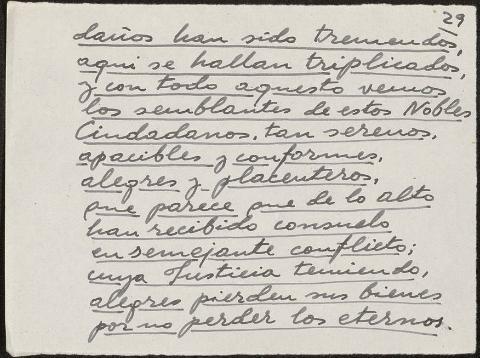 29
daños han sido tremendos,
aqui se hallan triplicados,
y con todo aquesto vemos
los semblantes de estos Nobles
Ciudadanos, tan serenos,
apacibles y conformes,
alegres y placenteros,
que parece que de lo alto
han recibido consuelo
en semejante conflicto;
cuya Justicia temiendo,
alegres pierden sus bienes
por no perder los eternos.